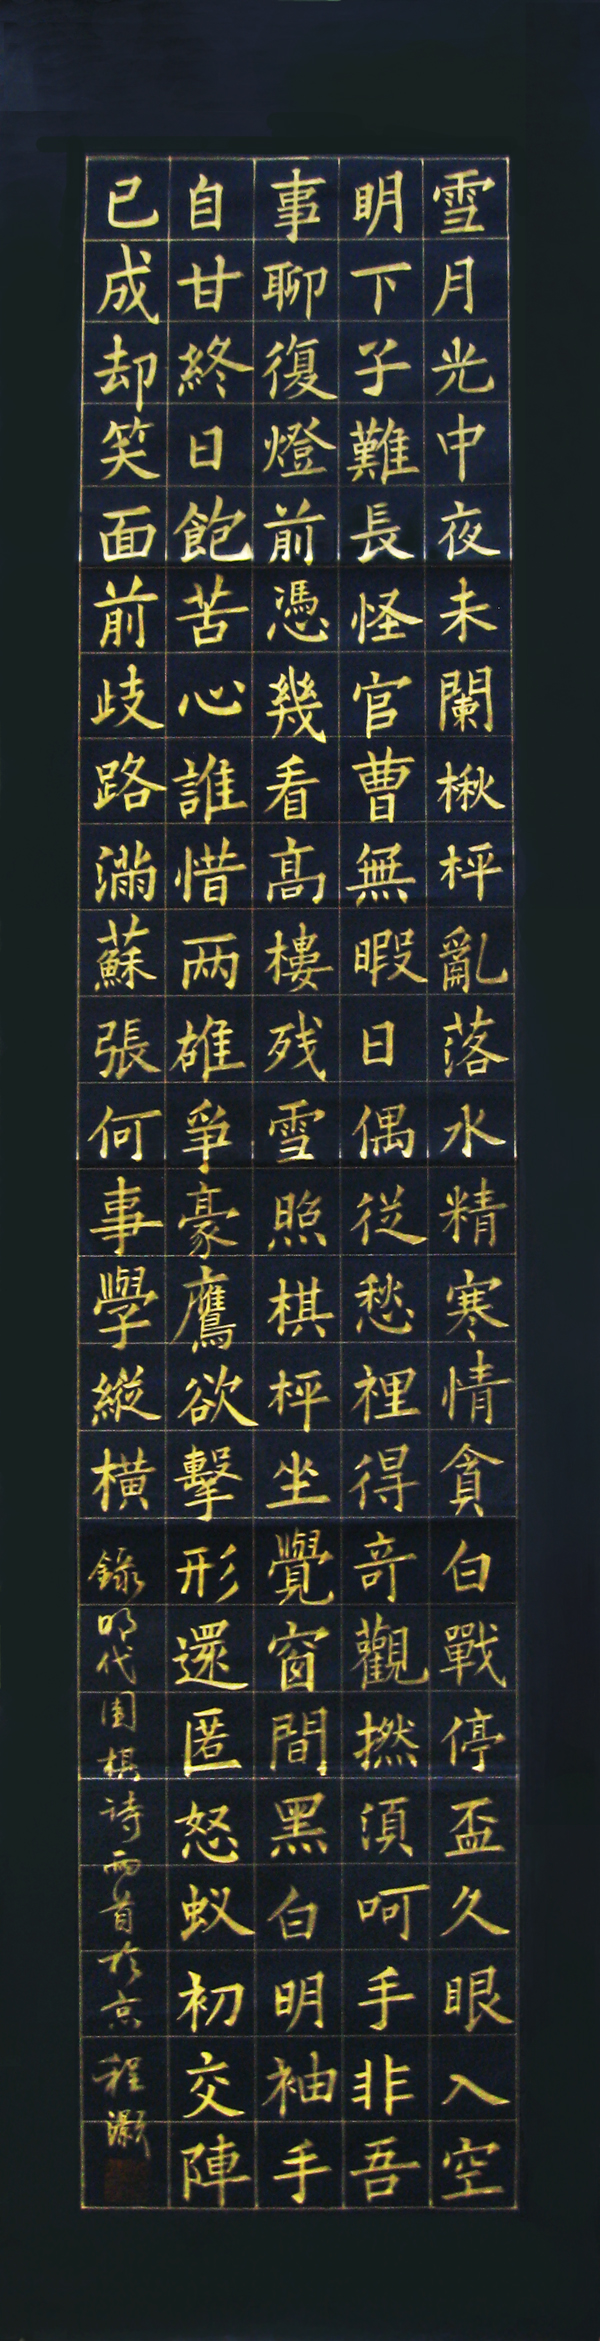 雪月光中夜未闌楸枰亂落水精寒情貪白戰停盃久眼入空
明下子難長怪官曹無暇日偶從愁裡得奇觀撚須呵手非吾
事聊復燈前憑幾看高樓残雪照棋枰坐覺窗間黑白明袖手
自甘終日飽苦心誰惜两雄爭豪鷹欲擊形還匿怒蚁初交陣
已成却笑面前歧路滿蘇張何事學縱橫
錄明代围棋诗两首於京程灏